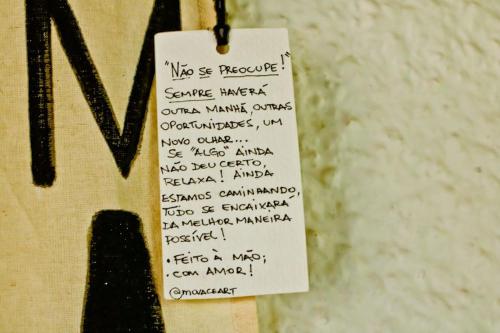 "NÃO SE PREOCUPE!"
SEMPRE HAVERÁ
OUTRA MANHÃ, OUTRAS
OPORTUNIDADES, UM
NOVO OLHAR...
SE "ALGO" AINDA
NÃO DEU CERTO,
RELAXA! AINDA
ESTAMOS CAMINHANDO,
TUDO SE ENCAIXARÁ
DA MELHOR MANEIRA
POSSÍVEL!
• FEITO À MÃO;
• COM AMOR!
@MOVACEART
M